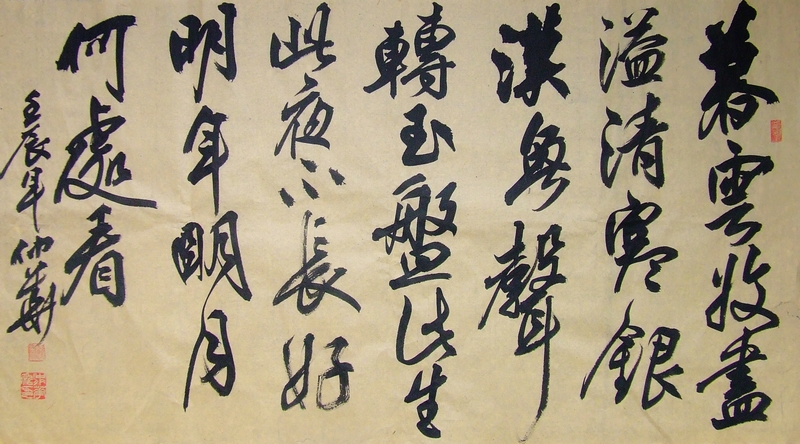 暮雲收盡
溢清寒銀
漢無聲
轉玉盤此生
此夜不長好
明年明月
何處看
壬辰年仲華